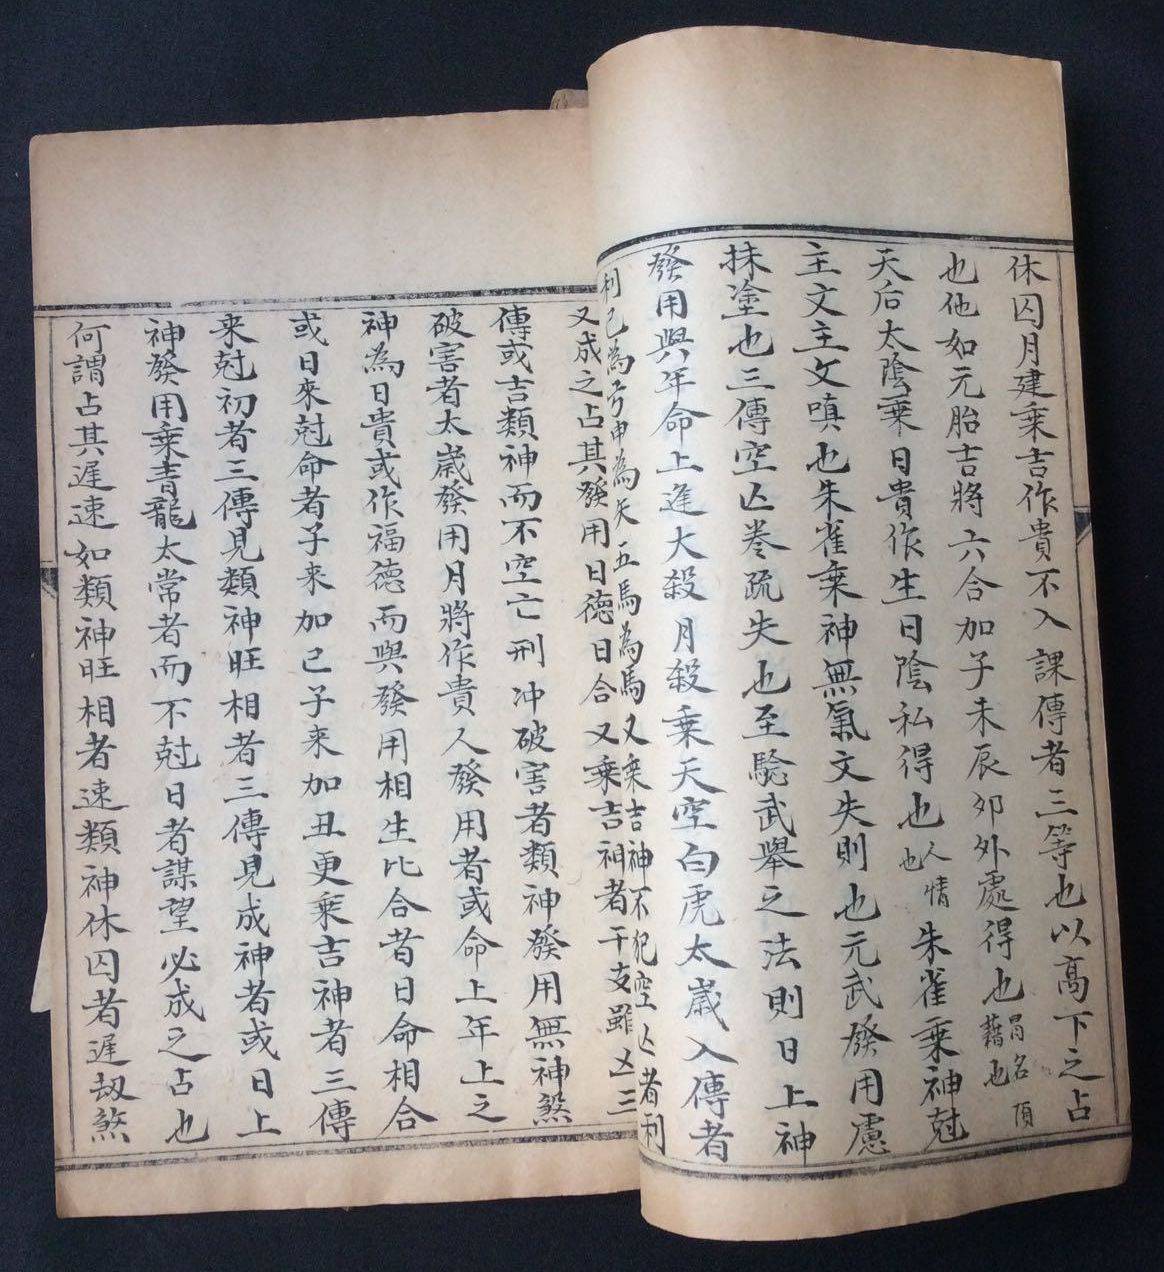 休囚月建乘吉作貴不入課傳者三等也以高下之占
也他如元胎吉將六合加子未辰夘外處得也冒名頂藉也
天后太陰乘日貴作生日陰私得也人情也朱雀乘神尅
主文主文嗔也朱雀乘神無氣文失則也元武發用慮
抹塗也三傳空亾卷疏失也至驗武舉之法則日上神
發用與年命上逢大殺月殺乘天空白虎太歲入傳者
利巳為弓申為矢五馬為馬又乘吉神不犯空亾者利
又成之占其發用日德日合又乘吉神者干支雖凶三
傳或吉類神而不空亡刑冲破害者類神發用無神煞
破害者太歲發用月將作貴人發用者或命上年上之
神為日貴或作福德而與發用相生比合者日命相合
或日來尅命者子来加己子来加丑更乘吉神者三傳
来尅初者三傳見類神旺相者三傳見成神者或日上
神發用乘青龍太常者而不尅日者謀望必成之占也
何謂占其遲速如類神旺相者速類神休囚者遲刼煞